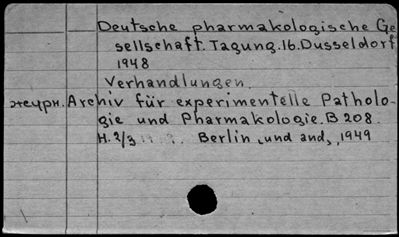 Deutsche pharmakologische Ge
sellschaft. Tagung. 16. Dusseldorf
1948
Verhandlungen.
Archiv für experimentelle Patholo-
gie und Pharmakologie. B 208.
H. 2/3 Berlin, und and., 1949